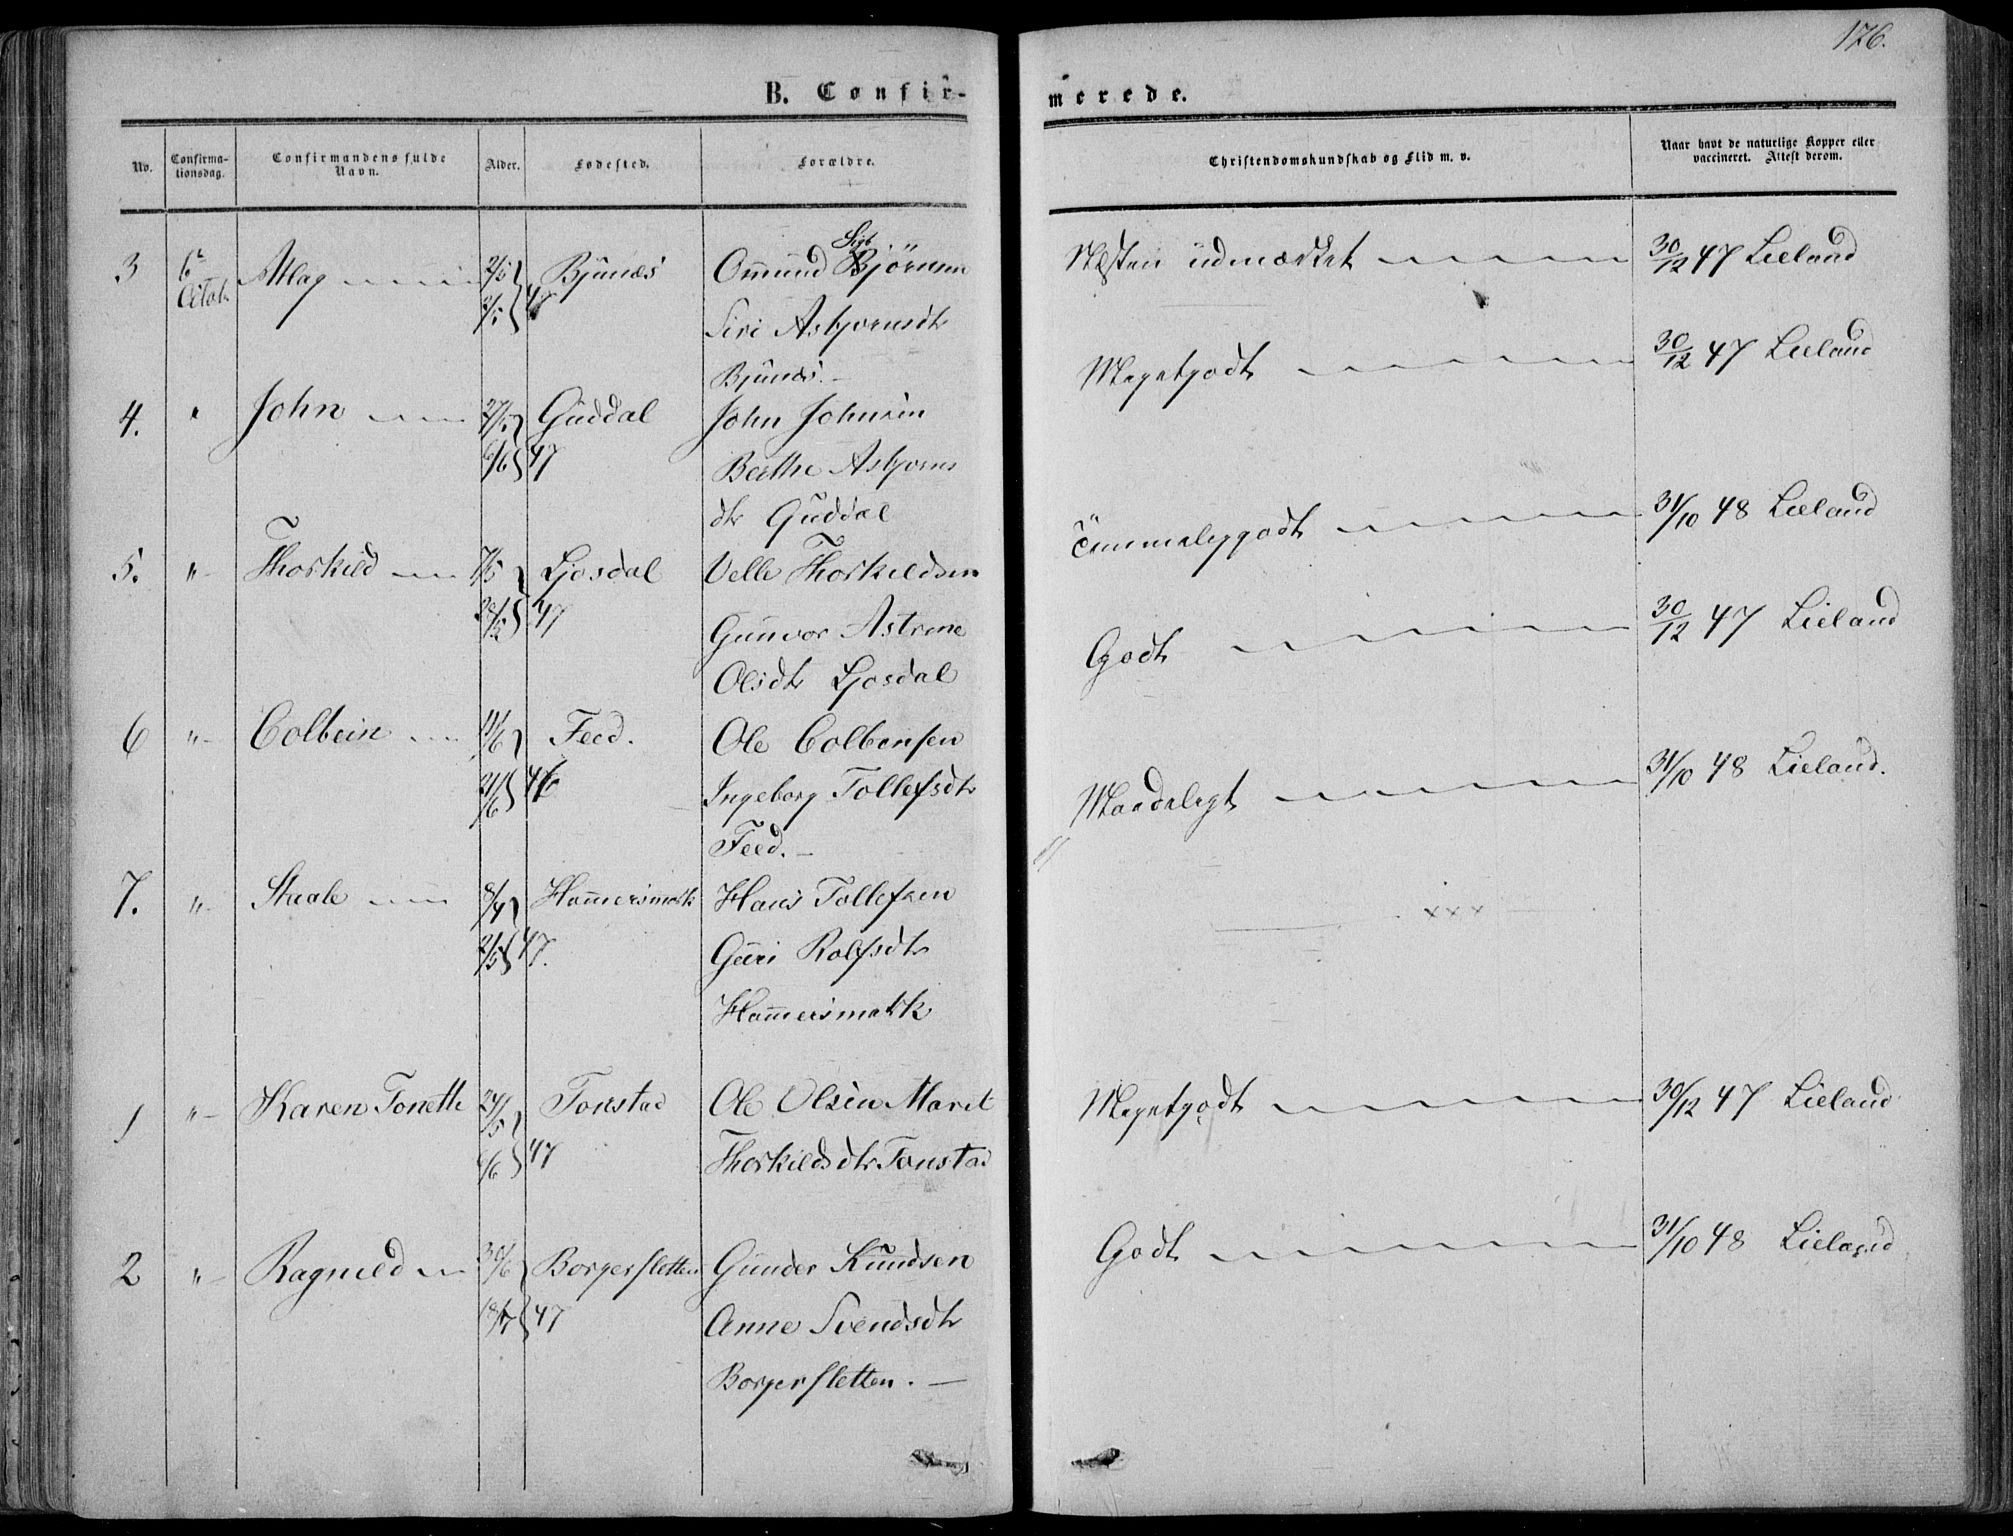 176.
B. Confir-
merede.
No.
Confirma-
tionsdag.
Confirmandens fulde
Navn.
Alder.
Fødested.
Forældre.
Christendomskundskab og Flid m. v.
Naar havt de naturlige Kopper eller
vaccineret. Attest derom.
3 6te Atlag 2/5 Bjunæs Omund Sigb Bjørnsen Næsten udmærket 30/12 47 Lieland
Octob. 2/5 47
Siri Asbjørnsdtr
Bjunæs.
4. " John 27/5 Guddal John Johnsen Megetgodt 30/12 47 Lieland
6/6 47 Berthe Asbjørns
dtr Guddal
5. " Thorkild 7/5 Ljosdal Velle Thorkildsen Temmeliggodt 31/10 48 Lieland
47 Gunvor Astrine
Olsdtr Ljosdal
6 " Colbein 11/6 Feed. Ole Colbensen Godt 30/12 47 Lieland
21/6 46 Ingeborg Tollefsdtr
Feed.
7. " Staale 8/4 Hammersmark Hans Tollefsen Maadelegt 31/10 48 Lieland.
2/5 47. Guri Rolfsdtr
Hammersmark
xxx
1 " Karen Tonette 24/5 Tonstad Ole Olsen Marit Megetgodt 30/12 47 Lieland
6/6 47 Thorkildsdtr Tonstad
2 " Ragnild 30/6 Borgersletten Gunder Knudsen Godt 31/10 48 Lieland
18/7 47 Anne Svendsdtr
Borgersletten.